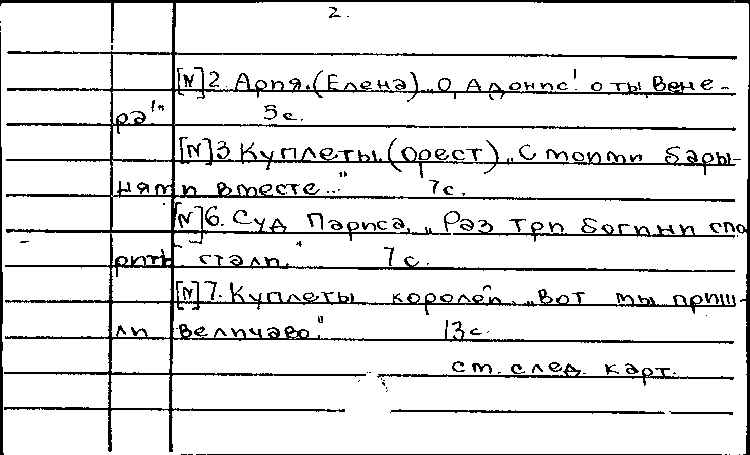 2.
[N]2. Ария. (Елена) „О, Адонис! о ты, Вене-
ра!" 3с.
[N]3 Куплеты. (Орест) „С моими бары-
нями вместе..." 7с.
[N]6. Суд Париса. „Раз три богини спо
рить стали." 7с.
[N]7. Куплеты королей. „Вот мы приш-
ли величаво." 13с.
см. след. карт.